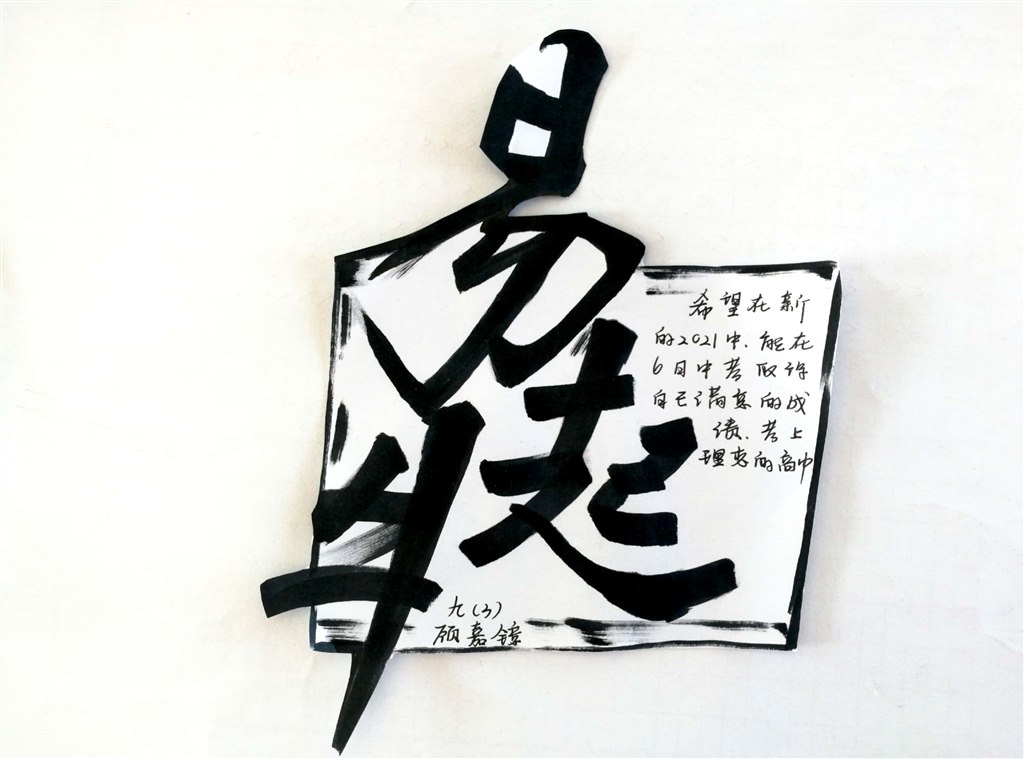 易
起
牛
希望在新
的2021中、能在
6月中考取得
自己满意的成
绩、考上
理想的高中
九(3)
顾嘉